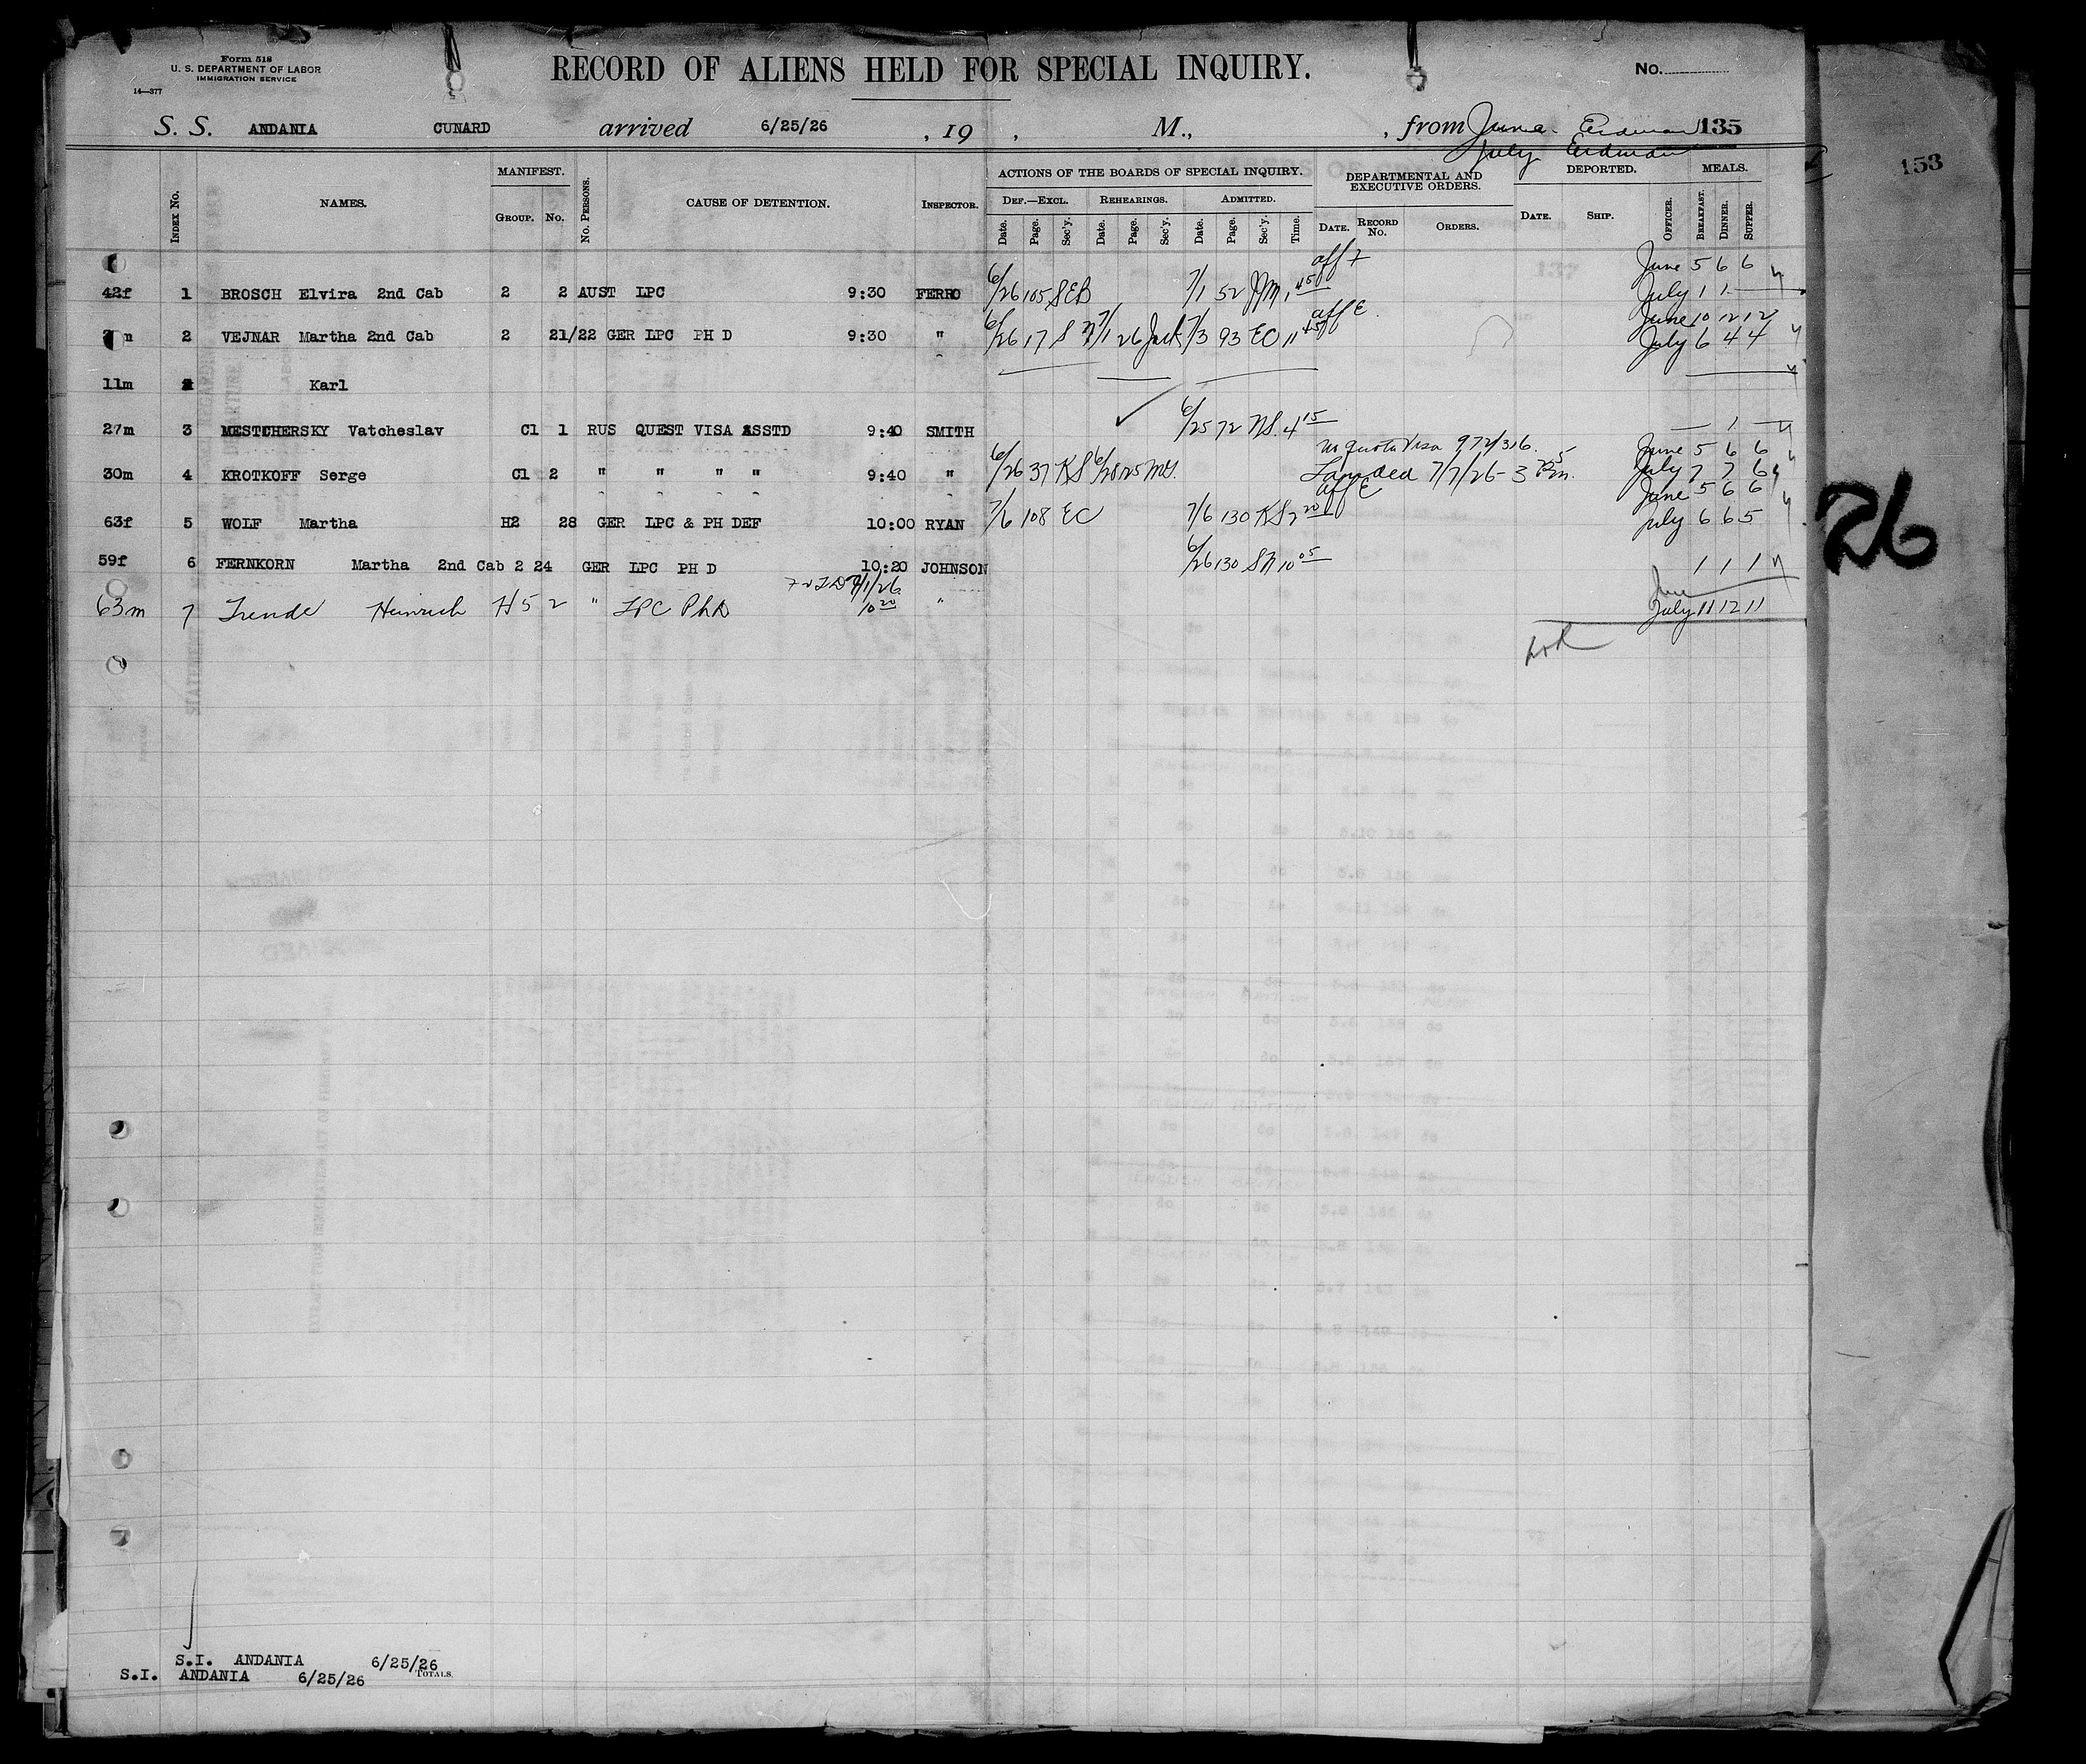 Form 518
U. S. DEPARTMENT OF LABOR
IMMIGRATION SERVICE
14—377
RECORD OF ALIENS HELD FOR SPECIAL INQUIRY.
No.
S. S. ANDANIA CUNARD arrived 6/25/26 , 19 , M., , from June Erdman 135
July Erdman
153
INDEX No. NAMES. MANIFEST. GROUP. No. No. PERSONS. CAUSE OF DETENTION. INSPECTOR.
ACTIONS OF THE BOARDS OF SPECIAL INQUIRY. DEPARTMENTAL AND EXECUTIVE ORDERS. DEPORTED. MEALS.
DEF.—EXCL. REHEARINGS. ADMITTED.
Date. Page. Sec'y. Date. Page. Sec'y. Date. Page. Sec'y. Time. DATE. RECORD No. ORDERS. DATE. SHIP. OFFICER. BREAKFAST. DINNER. SUPPER.
June 5 6 6
42f 1 BROSCH Elvira 2nd Cab 2 2 AUST LPC 9:30 FERRO 6/26 105 SEB 7/1 52 1 45 July 1 1 —
aff E June 10 12 12
2 VEJNAR Martha 2nd Cab 2 21/22 GER LPC PH D 9:30 " 6/26 17 7/1 26 7/3 93 EC 11 45 July 6 4 4
11m Karl
27m 3 MESTCHERSKY Vatcheslav Cl 1 RUS QUEST VISA ASSTD 9:40 SMITH 6/25 72 NS. 4 15 — 1 —
Quota Visa June 5 6 6
30m 4 KROTKOFF Serge Cl 2 " " " " 9:40 " 6/26 37 KS Landed 7/7/26 - 3 Pm. July 7 7 6
aff E June 5 6 6
63f 5 WOLF Martha H2 28 GER LPC & PH DEF 10:00 RYAN 7/6 108 EC 7/6 130 KS 2 20 July 6 6 5
59f 6 FERNKORN Martha 2nd Cab 2 24 GER LPC PH D 10:20 JOHNSON 6/26 130 10 05 1 1 1
7/1/26
63m 7 Heinrich H5 2 " LPC PhD 10 20 " July 11 12 11
26
S.I. ANDANIA 6/25/26
S.I. ANDANIA 6/25/26 TOTALS.